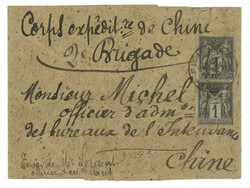 Corps expédit.re de Chine
2e Brigade
Monsieur Michel
officier d'adm.on
des bureaux de l'Intendance
Chine
Envoi de Mr Sergent
officier
1